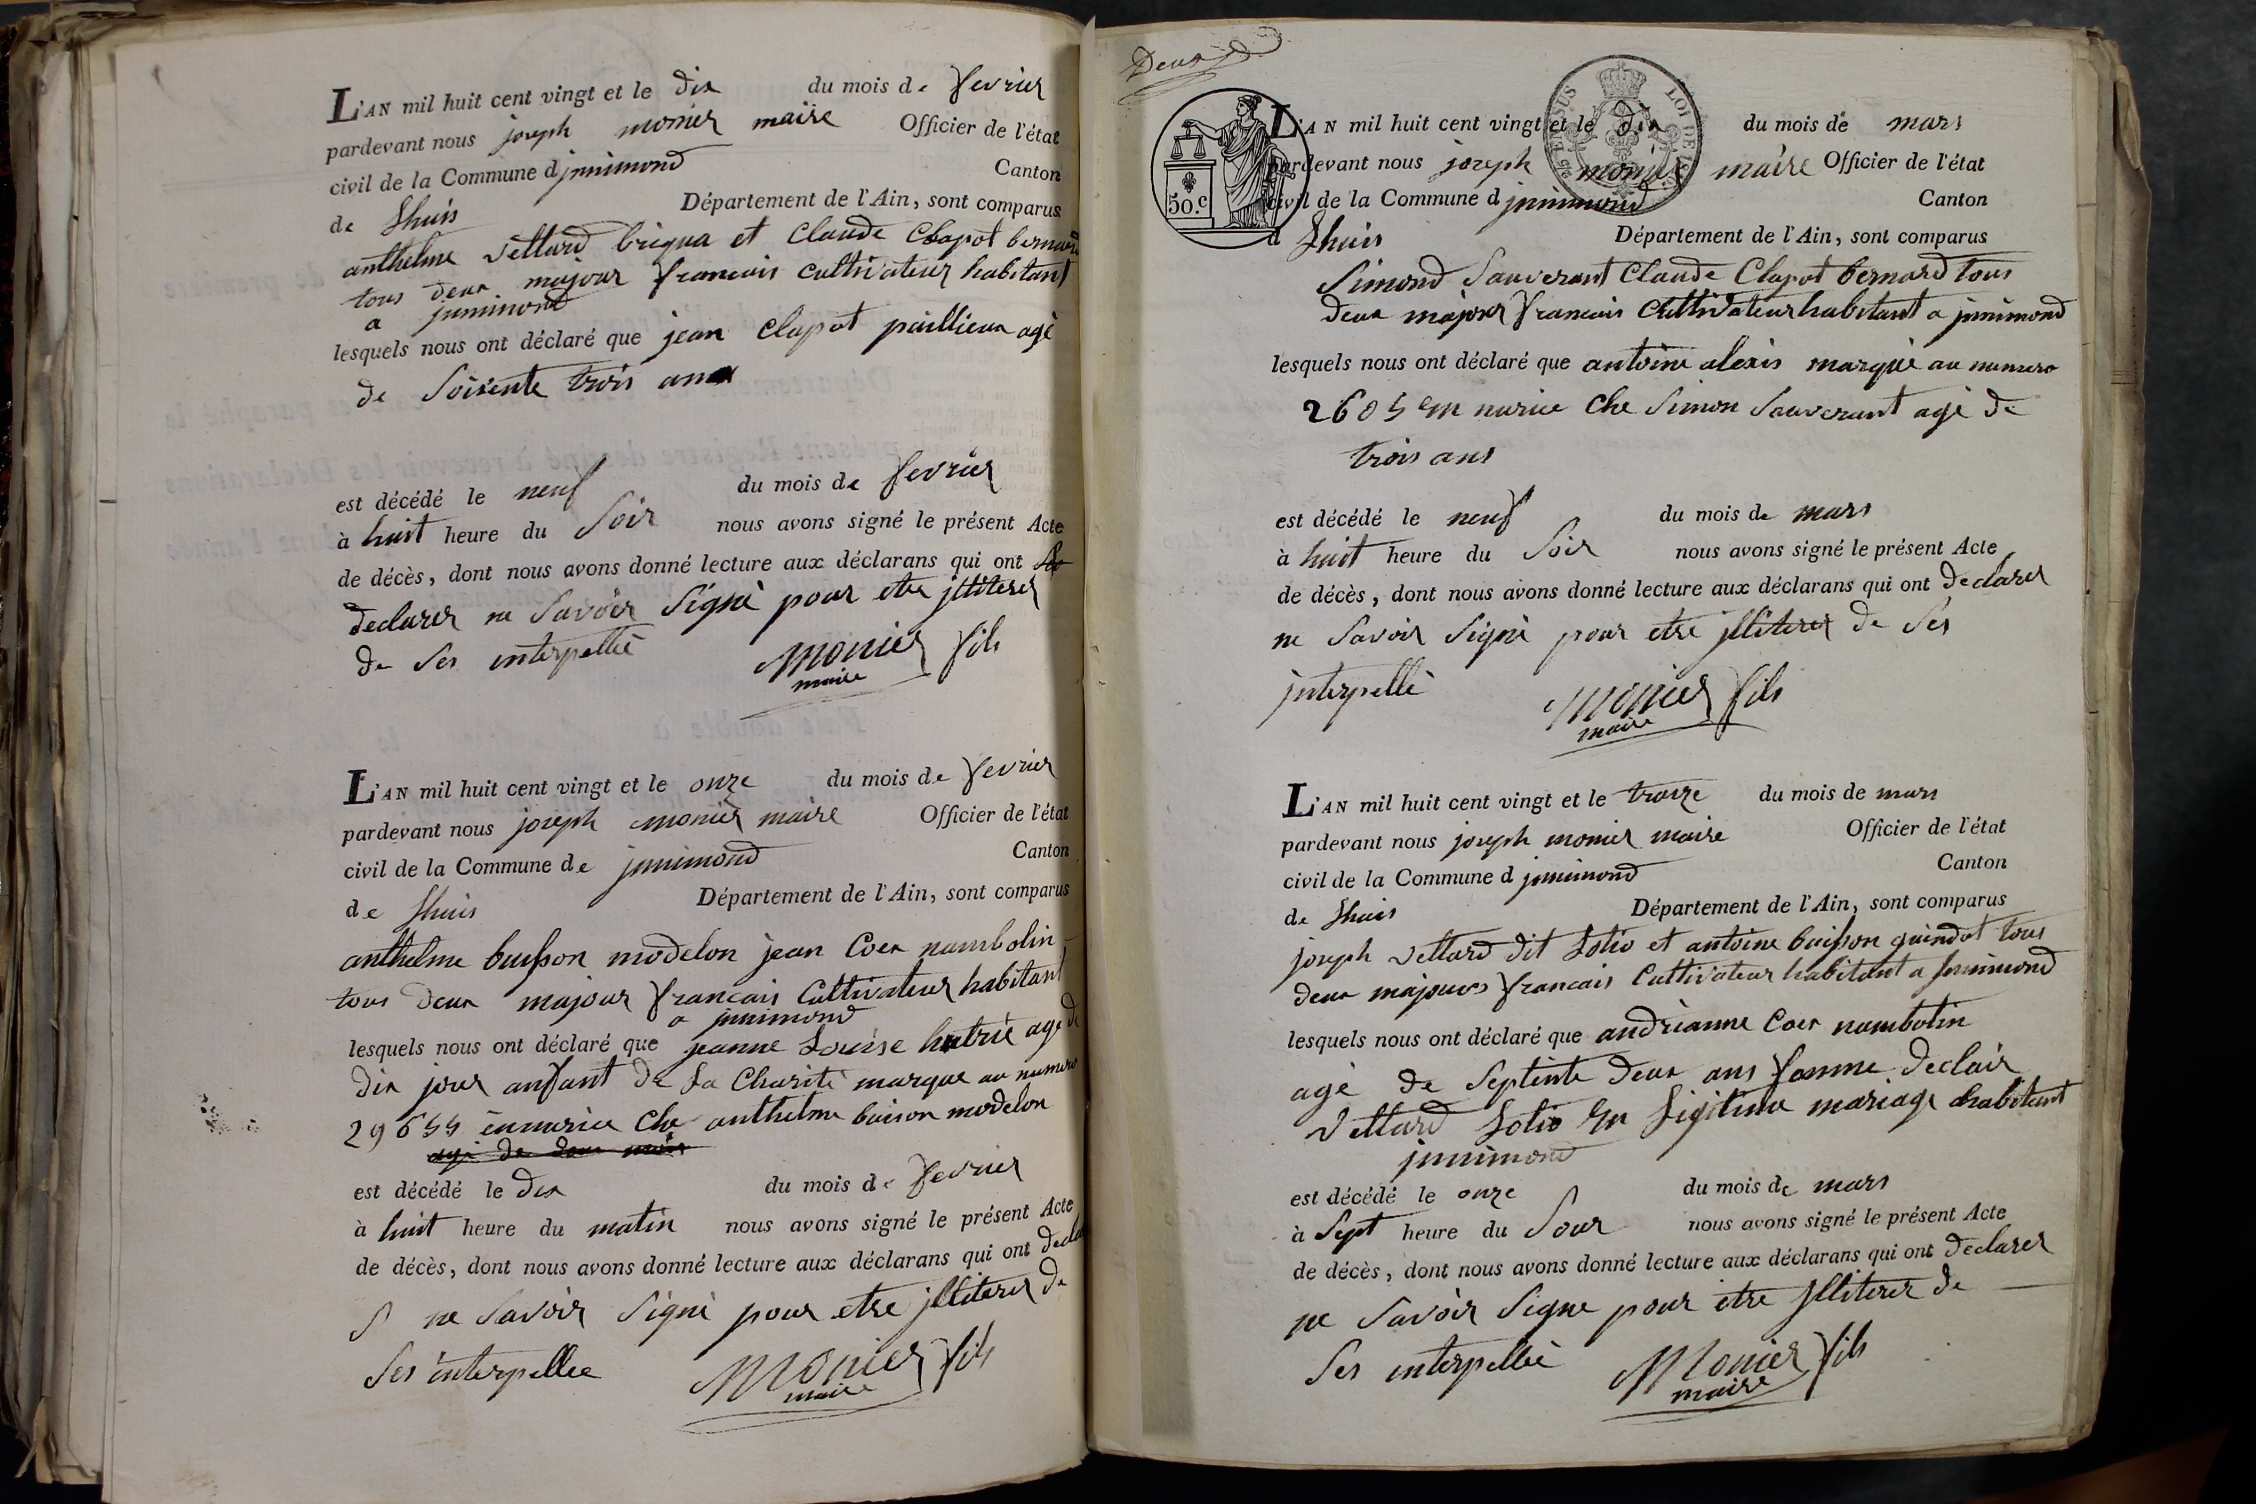 L'AN mil huit cent vingt et le dix du mois de fevrier
pardevant nous joseph monier maire Officier de l'état
civil de la Commune d jnnimond Canton
de Lhuis Département de l'Ain, sont comparus
anthelme Vettard briqua et Claude Clapot bernard
tous deux majour francais cultivateur habitant
a jnnimond
lesquels nous ont déclaré que jean Clapot paillieux agé
de Soisente trois ans
est décédé le neuf du mois de fevrier
à huit heure du Soir nous avons signé le présent Acte
de décès, dont nous avons donné lecture aux déclarans qui ont
declarer ne Savoir Signè pour etre jlliterer
de Ses interpellè
Monier fils
maire
L'AN mil huit cent vingt et le onze du mois de fevrier
pardevant nous joseph monier maire Officier de l'état
civil de la Commune de jnnimond Canton
de Lhuis Département de l'Ain, sont comparus
anthelme buisson modelon jean Coer nambotin
tous deux majour francais Cultivateur habitant
a jnnimond
lesquels nous ont déclaré que jeanne Louise hutrié age de
dix jour anfant de La Charité marque au numero
29644 ennurice Che anthelme buison modelon
agé de
est décédé le dix du mois de fevrier
à huit heure du matin nous avons signé le présent Acte
de décès, dont nous avons donné lecture aux déclarans qui ont decla
r ne Savoir Signè pour etre jlliterer de
Ses interpellee
Monier fils
maire
Deux
50.c
L'AN mil huit cent vingt et le dix du mois de mars
pardevant nous joseph monier maire Officier de l'état
civil de la Commune d jnnimond Canton
d Lhuis Département de l'Ain, sont comparus
Simond Sauverant Claude Clapot bernard tous
deux majour francais Cultivateur habitant a jnnimond
lesquels nous ont déclaré que antoine alexis marqué au numero
2604 em nurice Che Simon Sauverant agé de
trois ans
est décédé le neuf du mois de mars
à huit heure du Soir nous avons signé le présent Acte
de décès, dont nous avons donné lecture aux déclarans qui ont declarer
ne Savoir Signè pour etre jlliterer de Ses
jnterpellè
Monier fils
maire
L'AN mil huit cent vingt et le treize du mois de mars
pardevant nous joseph monier maire Officier de l'état
civil de la Commune d jnnimond Canton
de Lhuis Département de l'Ain, sont comparus
joseph Vettard dit Lolio et antoine buisson guindot tous
deux majours francais Cultivateur habitant a jnnimond
lesquels nous ont déclaré que andrianne Coer nambotin
agè de Septente deux ans famme declair
Vettard Lolio en Legitime mariage habitant
jnnimond
est décédé le onze du mois de mars
à Sept heure du Sour nous avons signé le présent Acte
de décès, dont nous avons donné lecture aux déclarans qui ont declarer
ne Savoir Signe pour être jlliterer de
Ses interpellè
Monier fils
maire